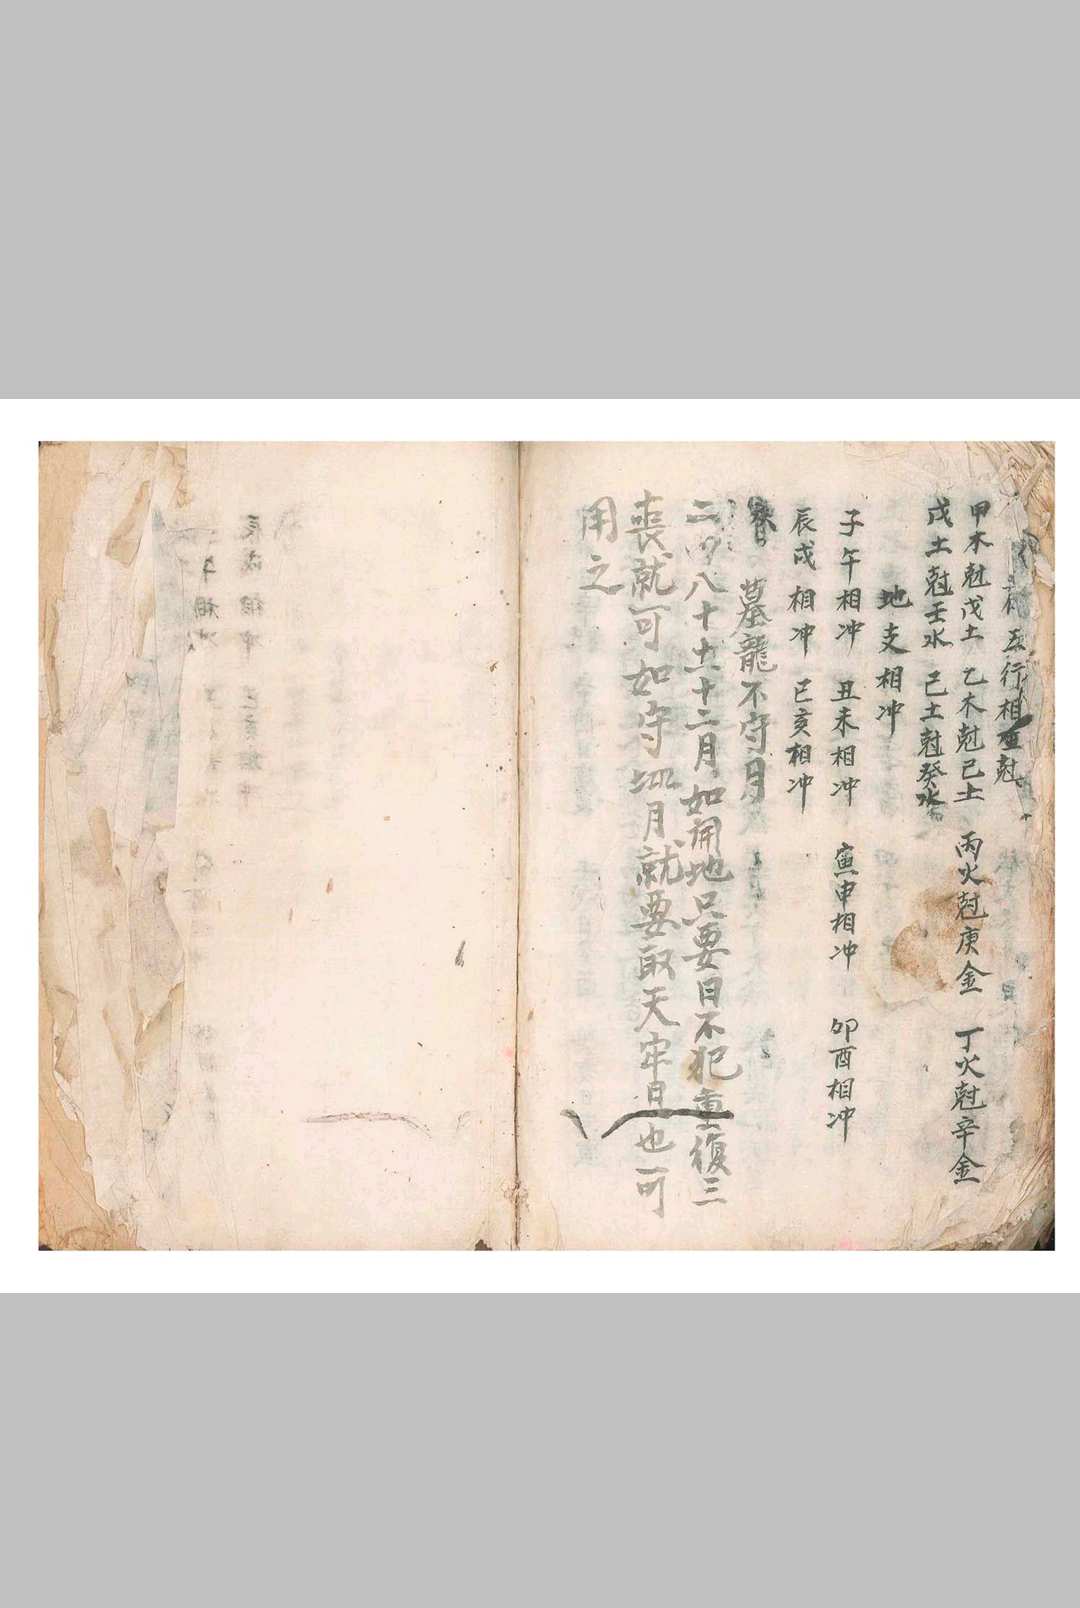 五行相尅
甲木尅戊土 乙木尅己土 丙火尅庚金 丁火尅辛金
戊土尅壬水 己土尅癸水
地支相冲
子午相冲 丑未相冲 寅申相冲 卯酉相冲
辰戌相冲 巳亥相冲
墓龍不守月
二四八十十一十二月如開地只要日不犯重復三
喪就可如守坵月就要取天牢日也可
用之